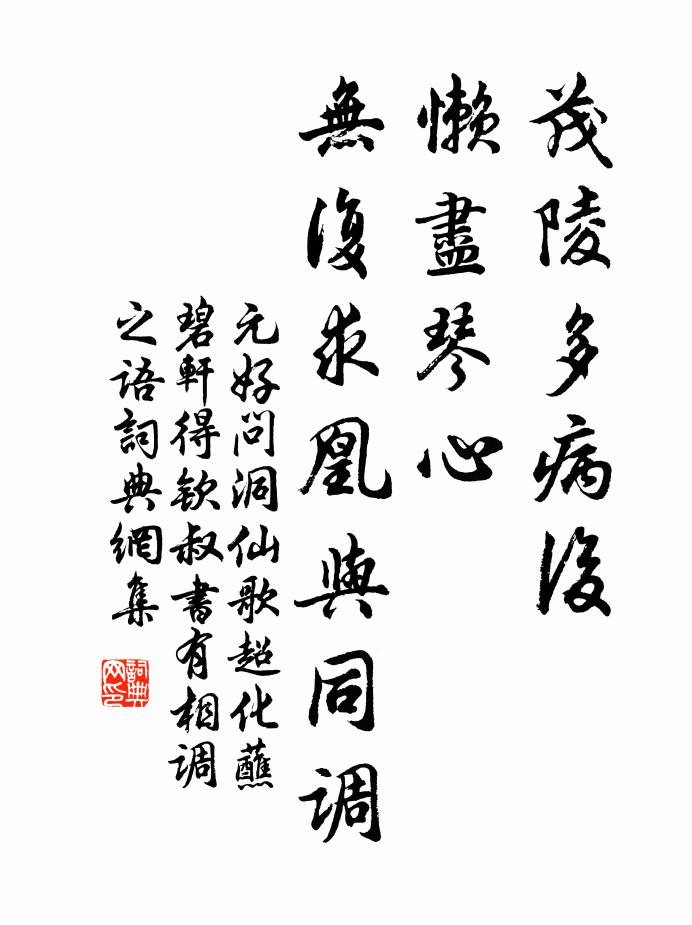 茂陵多病後
懶盡琴心
無復求凰與同調
元好問洞仙歌超化蘸
碧軒得欽叔書有相調
之語詞典網集
詞典网印